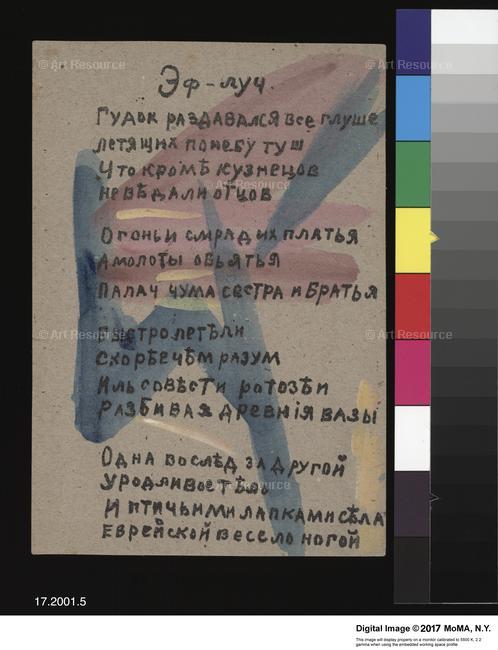 Эф-луч.
Гудок раздавался все глуше
летящих по небу туш
Что кромѣ кузнецов
невѣдали отцов
Огоньи смрад их платья
Амолоты обьятья
Палач чума сестра и братья
Быстро летѣли
скорѣе чѣм разум
Иль совѣсти ротозѣи
разбивая древнія вазы
Одна вослѣд за другой
Уродливое тѣло
И птичьими лапками сѣла
еврейской весело ногой
© Art Resource
© Art Resource
© Art Resource
© Art Resource
© Art Resource
© Art Resource
17.2001.5
Digital Image © 2017 MoMA, N.Y.
This image will display properly on a monitor calibrated to 6500 K, 2.2
gamma when using the embedded working space profile